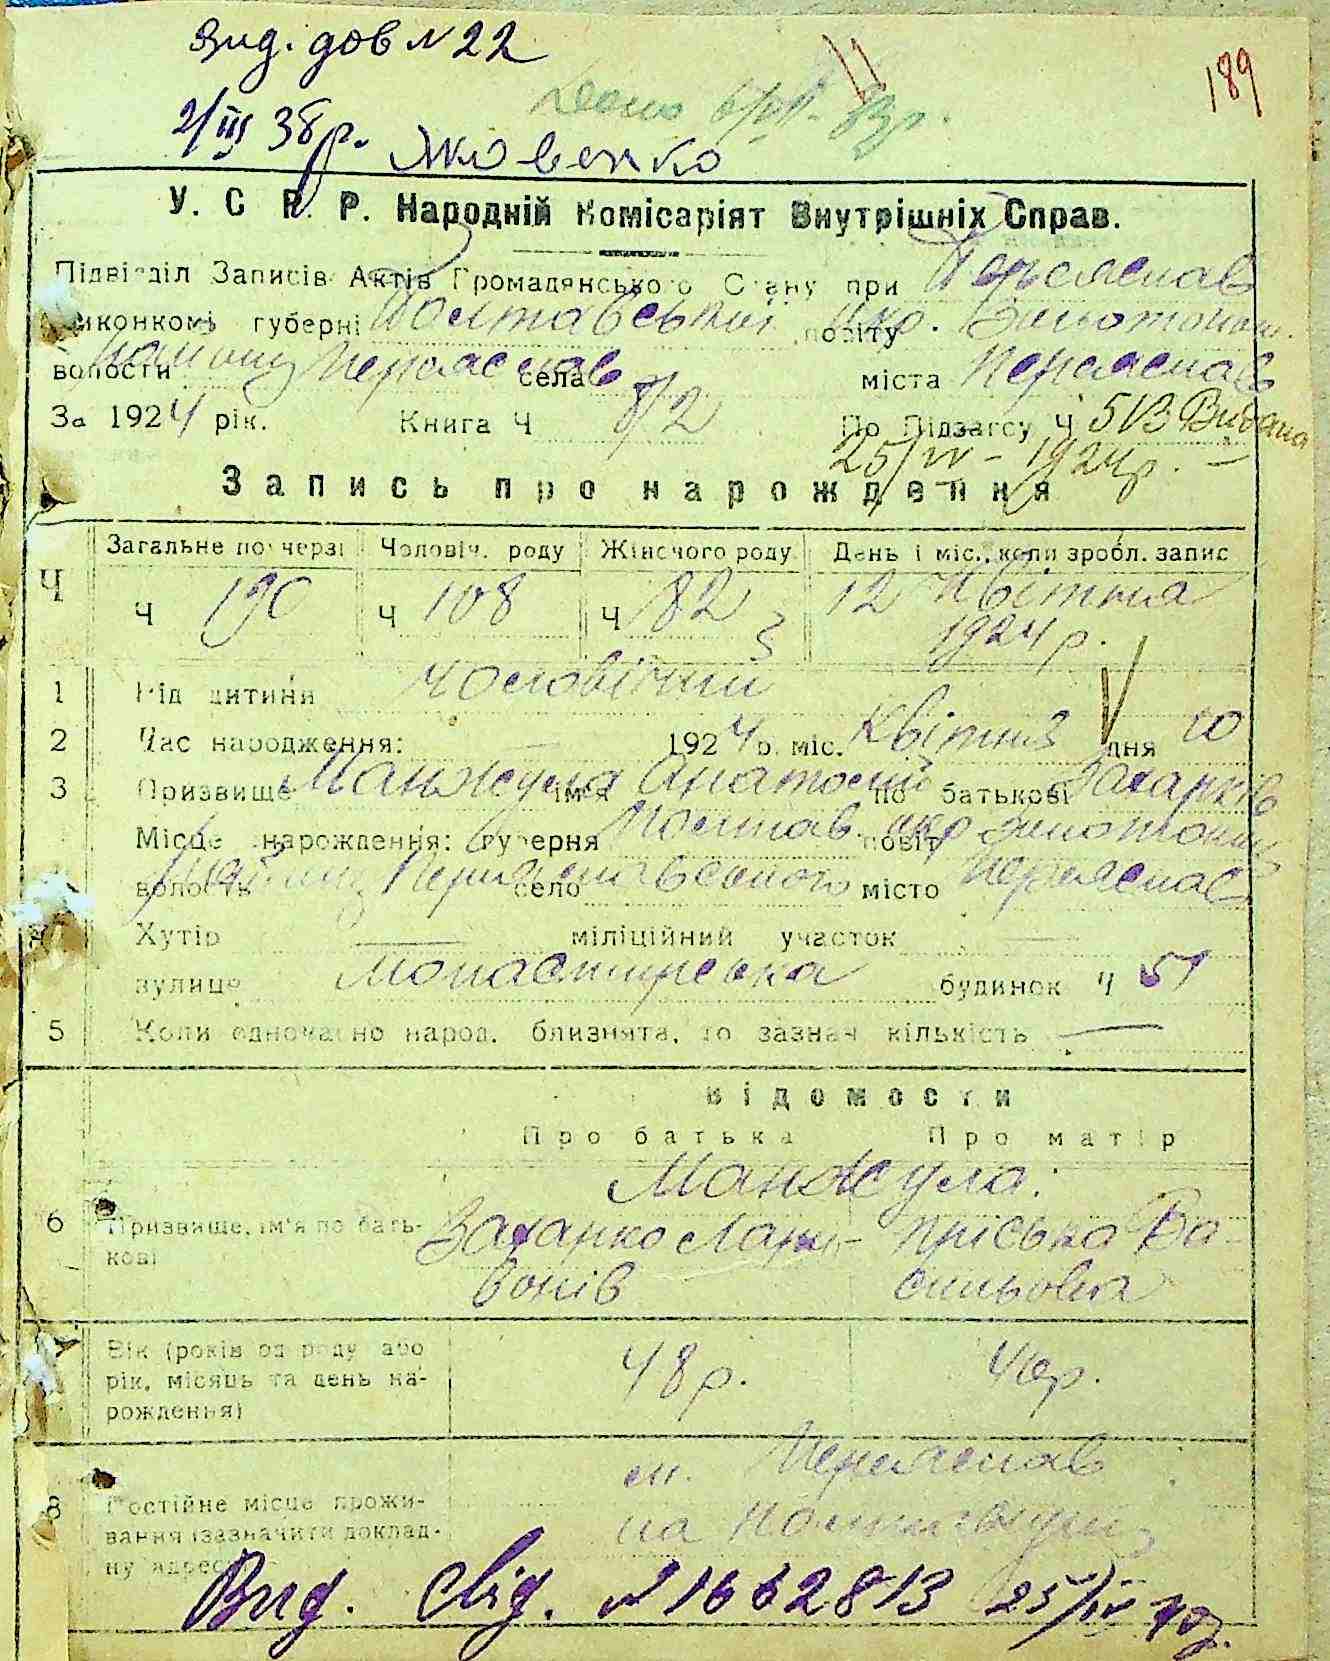 Вид. дов № 22
189
2/III 38 р. Яковенко
У. С. Р. Р. Народній Комісаріят Внутрішніх Справ.
Підвідділ Записів Актів Громадянського Стану при Переяслав
виконкомі губерні Полтавської повіту окр. Золотонош.
волости Переяслав села міста Переяслав
За 1924 рік. Книга Ч 8/2 По Підзагсу Ч 513 Видана
25/IV - 1924р. -
Запись про народження
Ч Загальне по черзі Чоловіч. роду Жіночого роду День і міс., коли зробл. запис
Ч 190 Ч 108 Ч 82 12 Квітня
1924 р.
1 Рід дитини чоловічий
2 Час народження: 1924 р. міс. Квітня дня 10
3 Призвище Манжула ім'я Анатолій по батькові Захарків
Місце нарождення: губерня Полтав. повіт окр Золотонош
волость Переяславського село місто Переяслав
Хутір — міліційний участок —
вулиця Монастирська будинок ч 51
5 Коли одночасно народ. близнята, то зазнач кількість —
Відомости
Про батька Про матір
Манжула.
6 Призвище, ім'я по бать- Захарко Лари- Пріська Ва
кові вонів сильовна
Вік (років од роду або 48 р. 40р.
рік, місяць та день на-
рождення)
м. Переяслав
8 Постійне місце прожи- на
вання (зазначити доклад-
ну адресу)
Вид. свід. № 1662813 25/IV 40р.